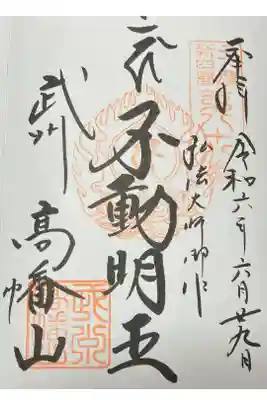 奉拝 令和六年六月廿九日
弘法大師御作
不動明王
武州 高幡山